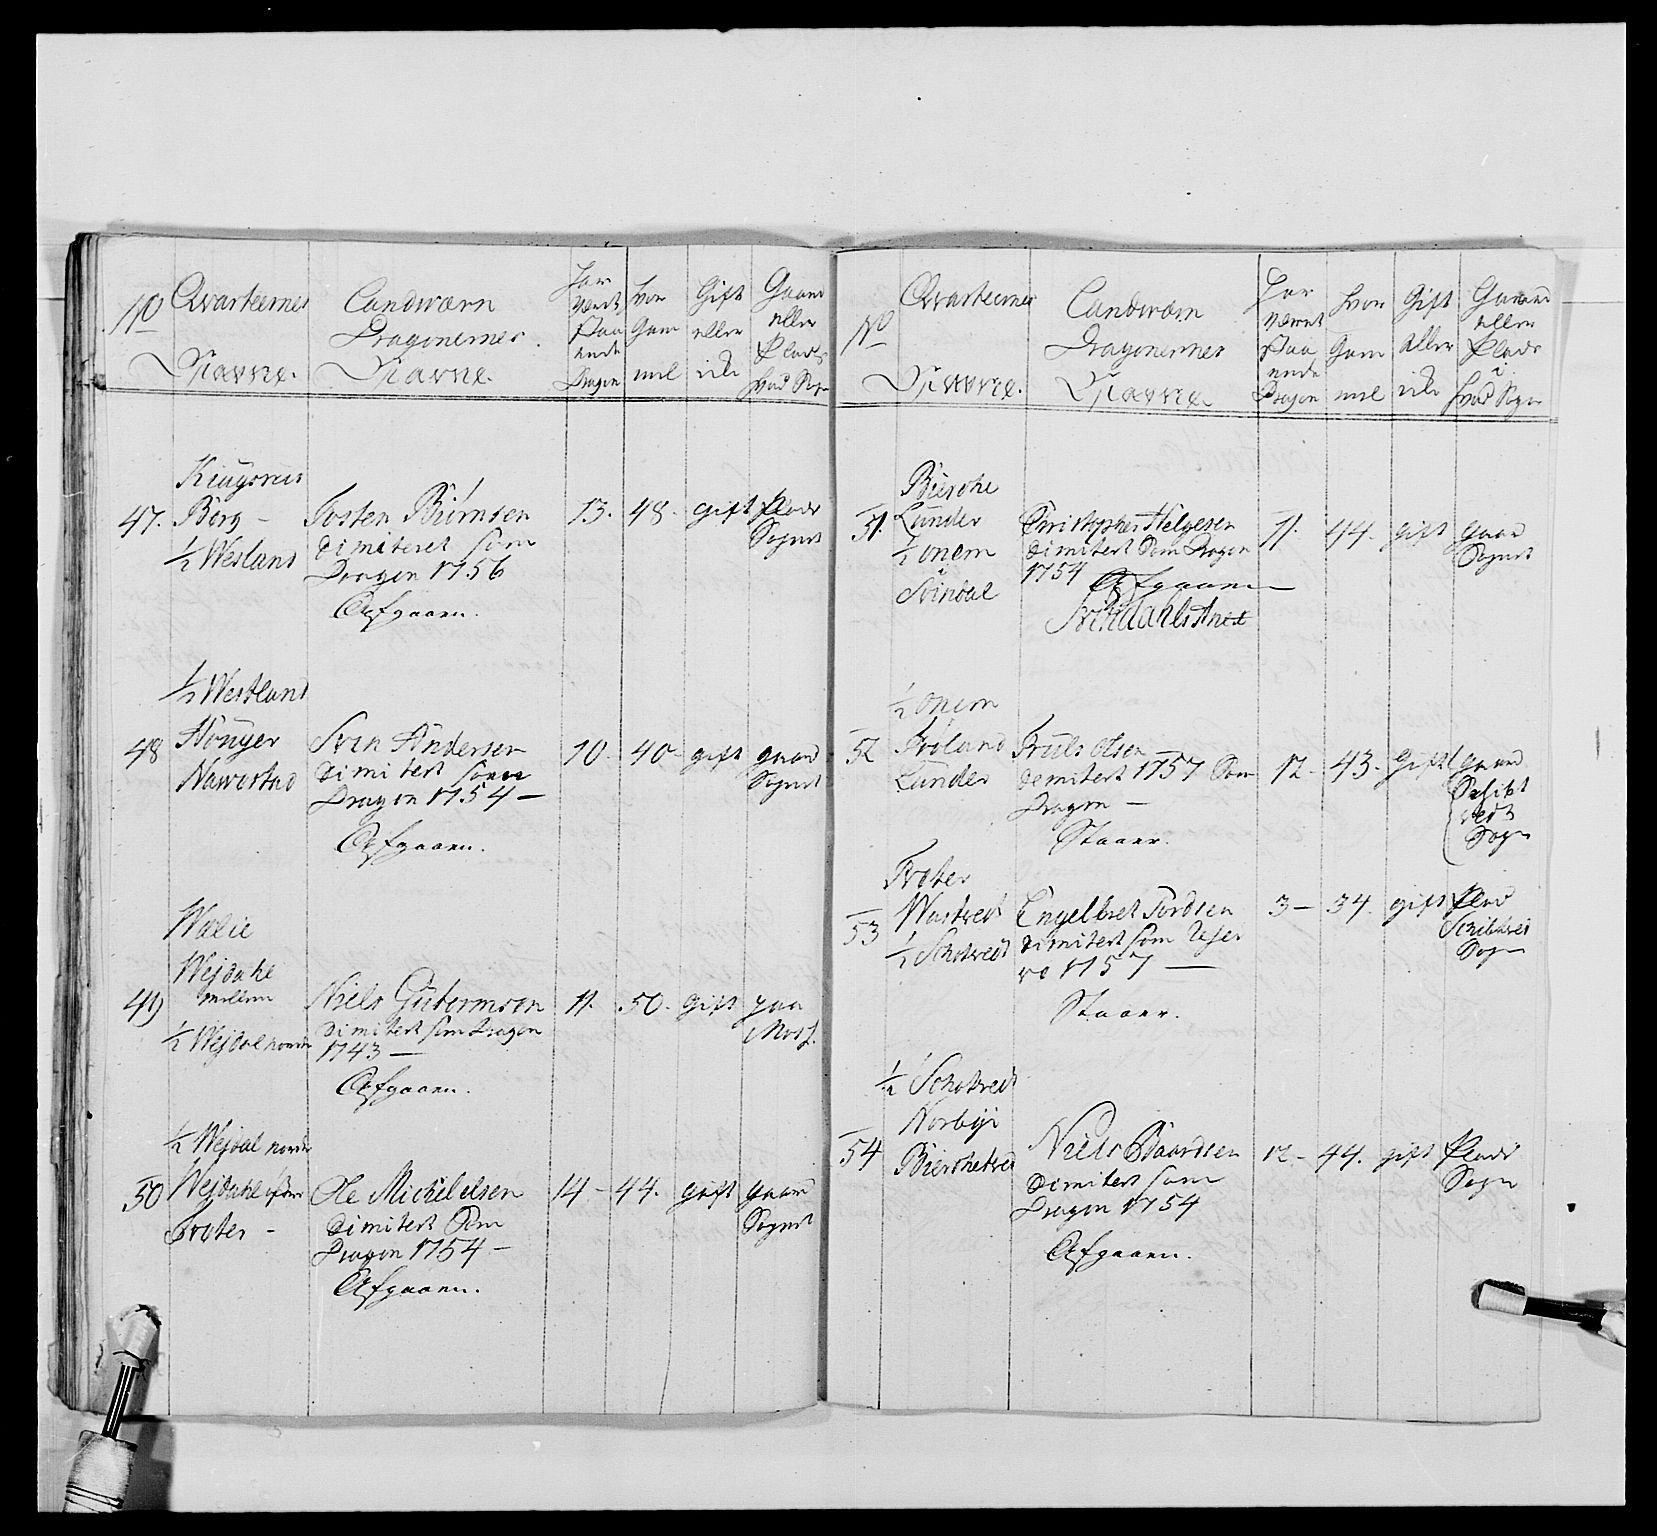 No
Qvarteernes
Navne.
Landværn
Dragonernes
Navne.
Har
Været
Paa
ende
Dragon
hvor
Gam
mel
Gift
eller
icke
Gaard
eller
Plads
hvad Sogn
47.
Berg -
½ Westland
Tosten
dimiteret som
Dragon 1756
Afgaaen.
13.
48.
gift
Plads
Sognet
½ Westland
48
Nawestad
Sven Andersen
dimitert som
Dragon 1754 —
Afgaaen.
10.
40
gift
gaard
Sognet
49
Wejdahl
mellem
½ Wejdal nordre
Niels
dimitert som Dragon
1743 —
Afgaaen.
11.
50.
gift
paa
½ Wejdal nordre
50
Wejdahl
Troter -
Ole Mickelelsen
dimitert som
Dragon 1754 —
Afgaaen.
14 -
44.
gift
gaard
Sognet
No
Qvarteernes
Navne.
Landværn
Dragonernes
Navne
Har
Været
Paa
ende
Dragon
hvor
Gam
mel
Gift
eller
icke
Gaard
eller
Plads
i
hvad Sogn
51.
Lunder
½ onem
i
Svindal
Christopher Helgesen
dimitert Som Dragon
1754
Afgaaen
Svindahls Anex
11.
44.
gift
gaard
Sognet
½ onem
52
Froland
Lunder
Truls Olsen
demitert 1757 Som
Dragon —
Staaer.
12 -
43.
Gift
gaard
Schibt
vedt
Sogn
Troter
53
Wastvedt
½ Schotvedt
Engelbret Tordsen
dimitert som Reser
ve 1757 —
Staaer.
3 —
34.
gift
Plads
Schibtvet
Sogn
½ Schotvedt
Norbye
54
Niels Baardsen
dimitert som
Dragon 1754
Afgaaen.
12 -
44.
gift
Plads
Sogn